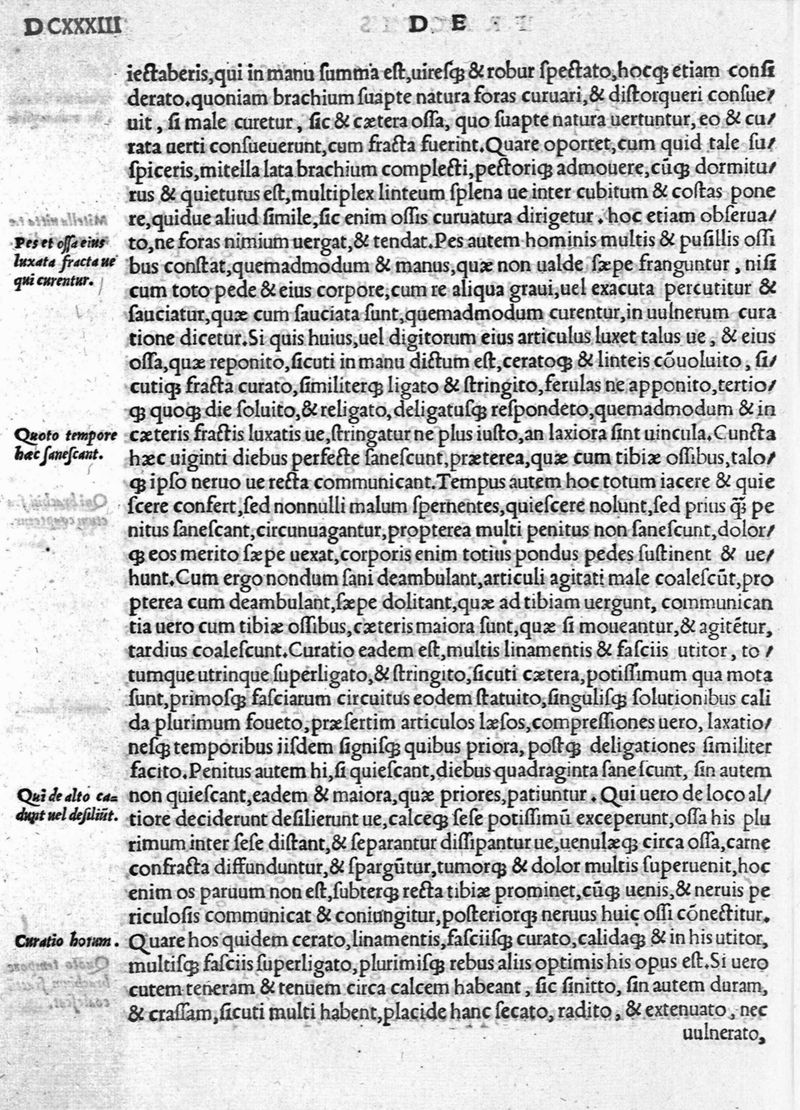 DCXXXIII
D E
iectaberis,qui in manu summa est,uiresq; & robur spectato,hocq; etiam consi
derato.quoniam brachium suapte natura foras curuari,& distorqueri consue/
uit , si male curetur, sic & cætera ossa, quo suapte natura uertuntur, eo & cu/
rata uerti consueuerunt,cum fracta fuerint.Quare oportet,cum quid tale su/
spiceris, mitella lata brachium complecti,pectoriq; admouere,cũq; dormitu/
rus & quieturus est,multiplex linteum splena ue inter cubitum & costas pone
re,quidue aliud simile,sic enim ossis curuatura dirigetur . hoc etiam obserua/
Pes et ossa eius
luxata fracta ue
qui curentur.
to,ne foras nimium uergat,& tendat.Pes autem hominis multis & pusillis ossi
bus constat,quemadmodum & manus,quæ non ualde sæpe franguntur , nisi
cum toto pede & eius corpore,cum re aliqua graui,uel exacuta percutitur &
sauciatur,quæ cum sauciata sunt,quemadmodum curentur,in uulnerum cura
tione dicetur.Si quis huius,uel digitorum eius articulus luxet talus ue , & eius
ossa,quæ reponito,sicuti in manu dictum est,ceratoq; & linteis cõuoluito, si/
cutiq; fracta curato,similiterq; ligato & stringito,ferulas ne apponito,tertio/
q; quoq; die soluito,& religato,deligatusq; respondeto,quemadmodum & in
Quoto tempore
hæc sanescant.
cæteris fractis luxatis ue,stringatur ne plus iusto,an laxiora sint uincula.Cuncta
hæc uiginti diebus perfecte sanescunt,præterea,quæ cum tibiæ ossibus,talo/
q; ipso neruo ue recta communicant.Tempus autem hoc totum iacere & quie
scere confert,sed nonnulli malum spernentes,quiescere nolunt,sed prius q̃; pe
nitus sanescant,circunuagantur,propterea multi penitus non sanescunt,dolor/
q; eos merito sæpe uexat,corporis enim totius pondus pedes sustinent & ue/
hunt.Cum ergo nondum sani deambulant,articuli agitati male coalescũt,pro
pterea cum deambulant,sæpe dolitant,quæ ad tibiam uergunt, communican
tia uero cum tibiæ ossibus,cæteris maiora sunt,quæ si moueantur,& agitẽtur,
tardius coalescunt.Curatio eadem est,multis linamentis & fasciis utitor, to /
tumque utrinque superligato,& stringito,sicuti cætera,potissimum qua mota
sunt,primosq; fasciarum circuitus eodem statuito,singulisq; solutionibus cali
da plurimum foueto,præsertim articulos læsos,compressiones uero, laxatio/
nesq; temporibus iisdem signisq; quibus priora, postq; deligationes similiter
facito.Penitus autem hi,si quiescant,diebus quadraginta sanescunt, sin autem
Qui de alto ca=
dunt uel desiliũt.
non quiescant,eadem & maiora,quæ priores,patiuntur . Qui uero de loco al/
tiore deciderunt desilierunt ue,calceq; sese potissimũ exceperunt,ossa his plu
rimum inter sese distant,& separantur dissipantur ue,uenulæq; circa ossa,carne
confracta diffunduntur,& spargũtur,tumorq; & dolor multis superuenit,hoc
enim os paruum non est,subterq; recta tibiæ prominet,cũq; uenis,& neruis pe
riculosis communicat & coniungitur,posteriorq; neruus huic ossi cõnectitur.
Curatio horum .
Quare hos quidem cerato,linamentis,fasciisq; curato,calidaq; & in his utitor,
multisq; fasciis superligato,plurimisq; rebus aliis optimis his opus est.Si uero
cutem teneram & tenuem circa calcem habeant , sic sinitto, sin autem duram,
& crassam,sicuti multi habent,placide hanc secato, radito , & extenuato , nec
uulnerato,